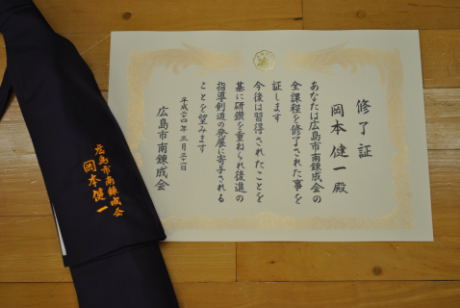 修了証
岡本健一殿
あなたは広島市南錬成会の
全課程を修了された事を
証します
今後は習得されたことを
基に研鑽を重ねられ後進の
指導剣道の発展に寄与される
ことを望みます
平成二四年三月三一日
広島市南錬成会
広島市南錬成会
岡本健一